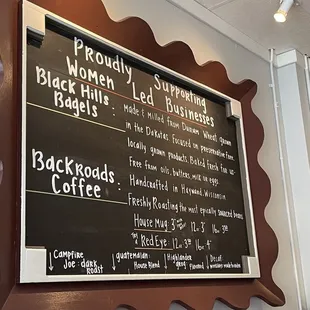 Proudly Supporting
Women Led Businesses
Black Hills
Bagels:
Made & Milled from Durum Wheat grown
in the Dakotas. Focused on preservative free
locally grown products. Baked fresh for us-
Free from oils, butters, milk or eggs.
Backroads:
Coffee
Handcrafted in Hayward, Wisconsin
Freshly Roasting the most ethically sourced beans
House Mug 3
12oz 3 16oz 3
Red Eye 12oz 3 16oz 4
Campfire
Joe: dark
roast
guatemalan:
House Blend
Highlander
grog
Flavored
Decaf